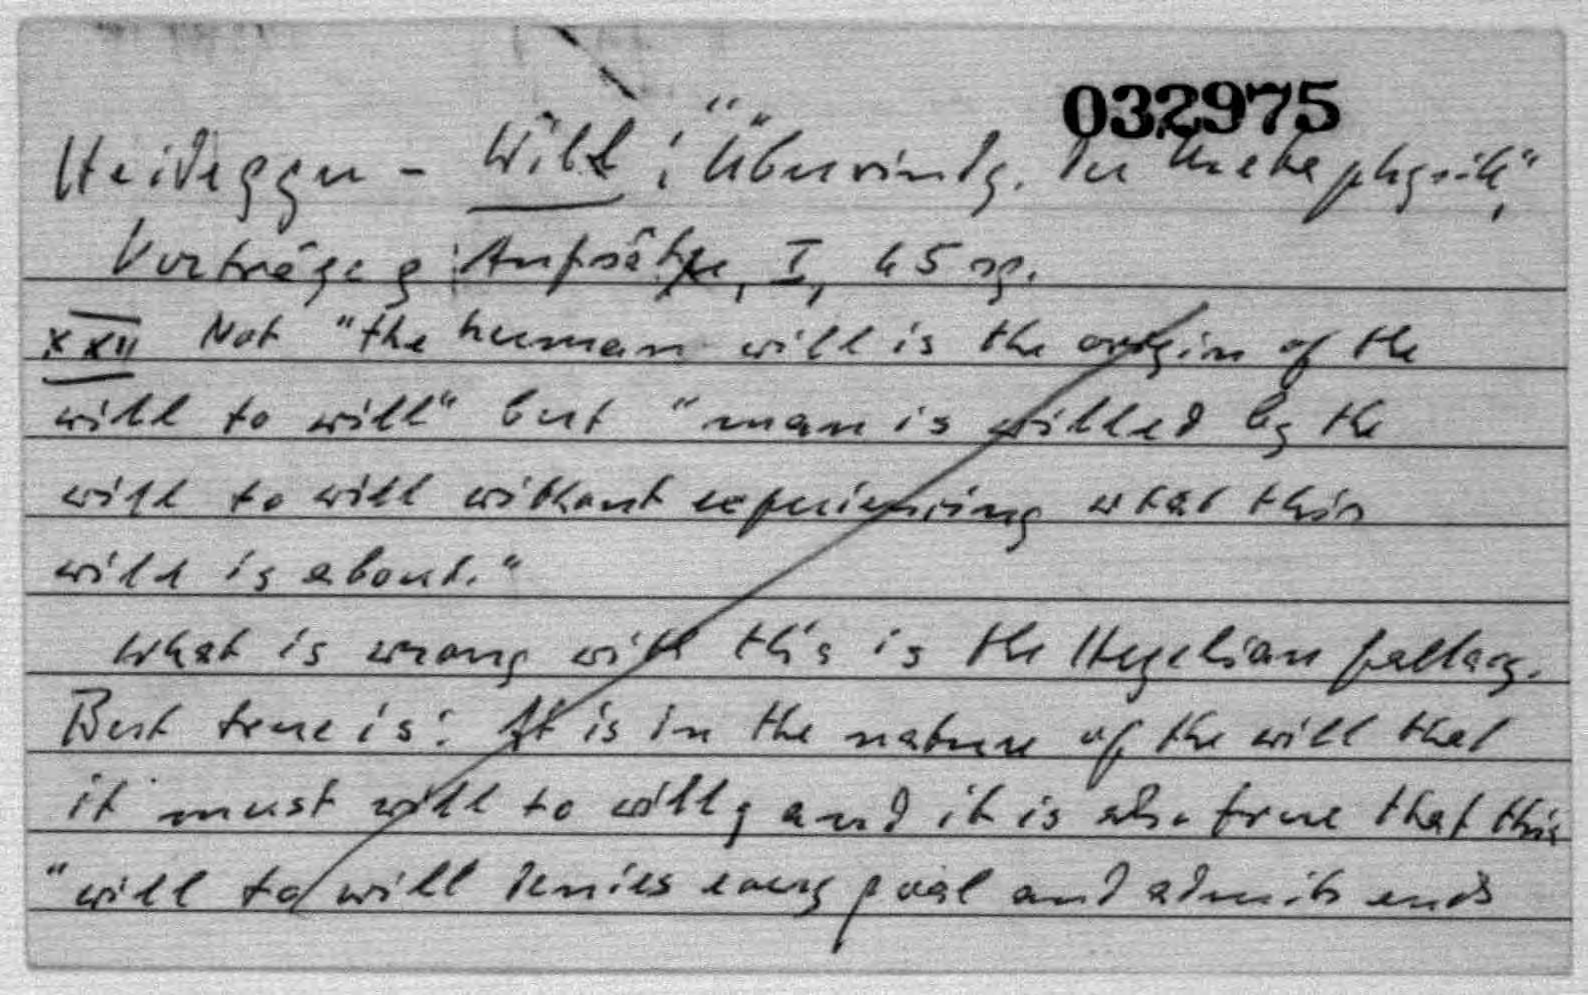 032975
Heidegger - Will: "Überwindg. der Metaphysik",
Vorträge & Aufsätze, I, 65 sq.
XXII Not "the human will is the origin of the
will to will" but "man is willed by the
will to will without experiencing what this
will is about."
What is wrong with this is the Hegelian fallacy.
But true is: It is in the nature of the will that
it must will to will; and it is also true that this
"will to will denies every goal and admits ends